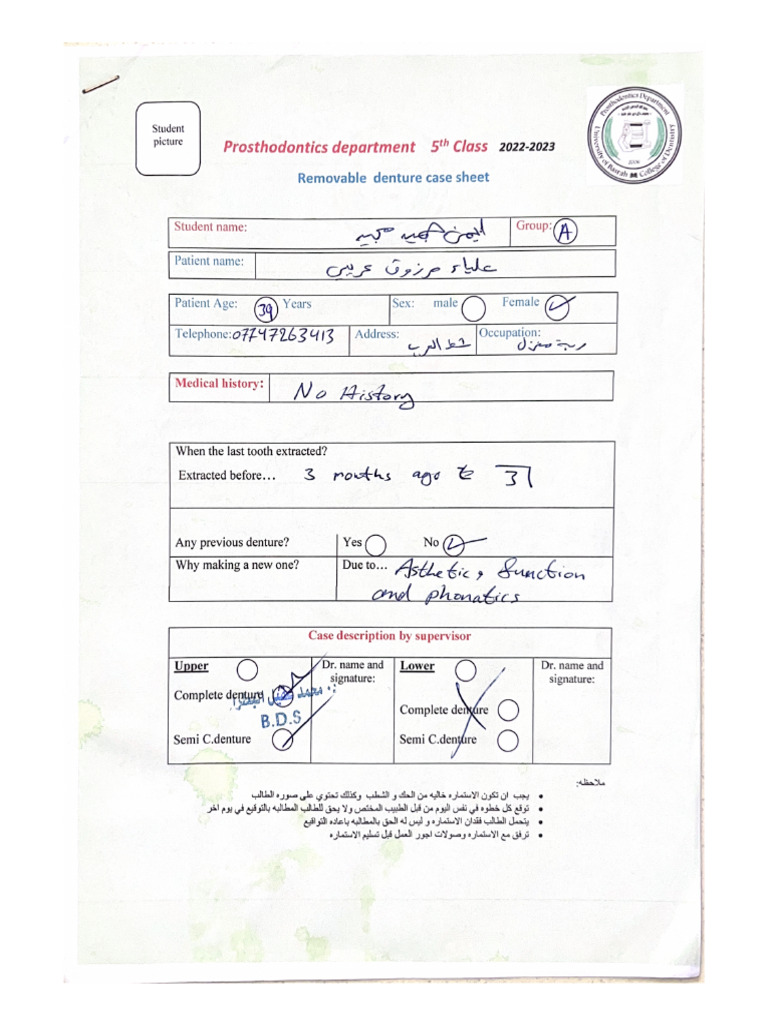 Student picture
Prosthodontics department 5th Class 2022-2023
Removable denture case sheet
Prosthodontics Department
University of Basrah College of Dentistry
Student name: ايمن
Group: A
Patient name: علياء مرزوق عريبي
Patient Age: 39 Years
Sex: male Female
Telephone: 07747263413
Address: شط العرب
Occupation: ربة منزل
Medical history: No History
When the last tooth extracted?
Extracted before… 3 months ago 3
Any previous denture? Yes No
Why making a new one? Due to… Asthetic, function
and phonatics
Case description by supervisor
Upper
Dr. name and signature:
Lower
Dr. name and signature:
Complete denture
Complete denture
B.D.S
Semi C.denture
Semi C.denture
ملاحظه:
يجب ان تكون الاستماره خاليه من الحك و الشطب وكذلك تحتوي على صوره الطالب
توقع كل خطوه في نفس اليوم من قبل الطبيب المختص ولا يحق للطالب المطالبه بالتوقيع في يوم اخر
يتحمل الطالب فقدان الاستماره و ليس له الحق بالمطالبه باعاده التواقيع
ترفق مع الاستماره وصولات اجور العمل قبل تسليم الاستماره